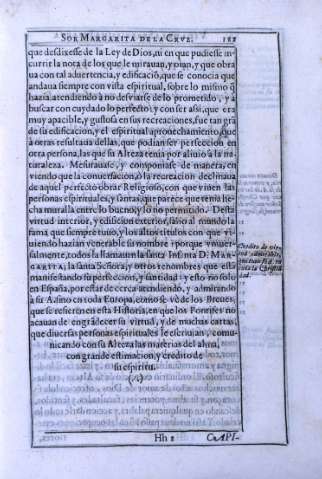 SOR MARGARITA DE LA CRVZ.
que desdixesse de la Ley de Dios, ni en que pudiesse in-
currir la nota de los que le mirauan, y oian, y que obra
ua con tal aduertencia, y edificació, que se conocia que
andaua siempre con vista espiritual, sobre lo mismo q̃
hazia, atendiendo à no desviarse de lo prometido, y à
buscar con cuydado lo perfecto; y con ser assi, que era
muy apacible, y gustosa en sus recreaciones, fue tan grã
de su edificacion, y el espiritual aprouechamiento, que
à otras resultaua dellas, que podian ser perfeccion en
otra persona, las que su Alteza tenia por aliuio à la na
turaleza. Mesurauase, y componiase de manera, en
viendo que la conuersació, ò la recreacion declinaua
de aquel perfecto obrar Religioso, con que viuen las
personas espirituales, y santas, que parece que tenia he
cha muralla entre lo bueno, y lo no permitido. Desta
virtud interior, y edificacion exterior, salio al mundo la
fama, que siempre tuuo, y los altos titulos con que vi
uiendo hazian venerable su nombre, porque vniuer-
salmente, todos la llamauan la santa Infanta D. MAR-
GARITA, la santa Señora, y otros renombres que està
manifestando su perfeccion, y santidad: y esto no solo
en España, por estar de cerca atendiendo, y admirando
à su Alteza, sino en toda Europa, como se vè de los Breues,
que se refieren en esta Historia, en que los Pontifices no
acauan de engrãdecer su virtud, y de muchas cartas,
que diuersas personas espirituales le escriuian, comu-
nicando con su Alteza las materias del alma,
con grande estimacion, y credito de
su espiritu.
Hh 2 CAPI-